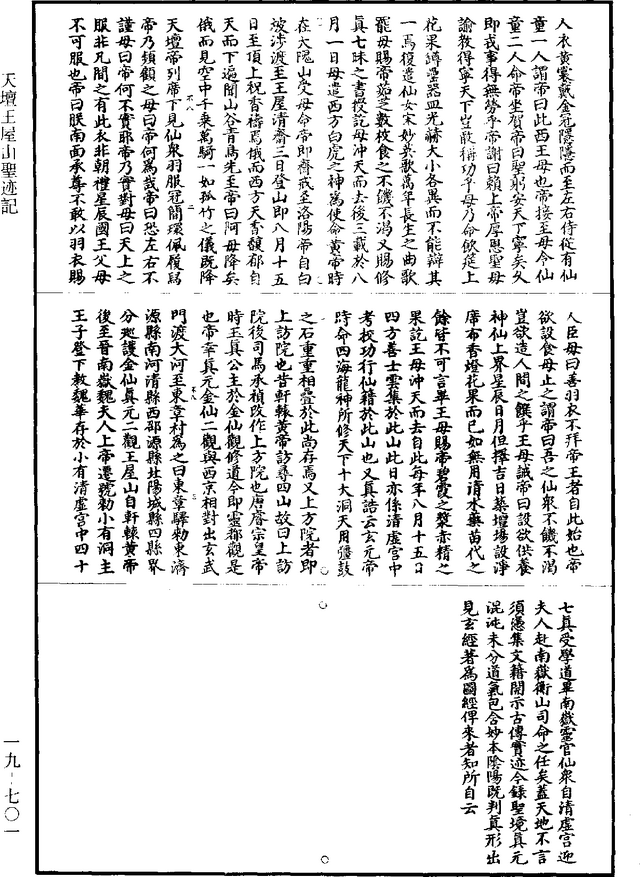 人衣黃裳戴金冠隱隱而至左右侍從有仙
童一人謂帝曰此西王母也帝接至母令仙
童二人命帝坐賀帝曰聖躬安天下寧矣久
即戎事得無勞乎帝謝曰賴上帝厚恩聖母
諭教得寧天下豈敢稱功乎母乃命飲筵上
花果罇罍器皿光赫大小各異而不能辯其
一焉復遣仙女宋妙英歌萬年長生之曲歌
罷母賜帝茹芝數枚食之不饑不渴又賜修
真七昧之書授訖母沖天而去後三載於八
月一日母遣西方白虎之神為使命黃帝時
在大隗山受母命帝即齋戒至洛陽帝自白
波涉渡至王屋清齋三日登山即八月十五
日至頂上祝香禱焉俄而西方天香馥郁自
天而下遍聞山谷青鳥先至帝曰阿母降矣
俄而見空中千乘萬騎一如孤竹之儀既降
天壇帝列席下見仙衆羽服冠簡環佩履舄
帝乃頻顧之母曰帝何爲哉帝曰恐左右不
謹母曰帝何不實耶帝乃實對母曰天上之
服非凡間之有此衣非朝禮星辰國王父母
不可服也帝曰朕南面承尊不敢以羽衣賜
人臣母曰善羽衣不拜帝王者自此始也帝
欲設食母止之謂帝曰吾之仙衆不饑不渴
豈欲造人間之饌乎王母誡帝曰設欲供養
神仙上界星辰日月但擇吉日築壇場設淨
席布香燈花果而已如無用清水藥苗代之
餘皆不可言畢王母賜帝碧霞之漿赤精之
果訖王母沖天而去自此每年八月十五日
四方善士雲集於此山此日亦係清虛宮中
考校功行仙籍於此山也又真誥云玄元帝
時命四海龍神所修天下十大洞天用彊鼓
之石重重相疊於此尚存焉又上方院者即
上訪院也昔軒轅黃帝訪尋四山故曰上訪
院後司馬承禎改作上方院也唐睿宗皇帝
時玉真公主於金仙觀修道今即靈都觀是
也帝幸真元金仙二觀與西京相對出玄武
門渡大河至東章村為之曰東章驛勅東濟
源縣南河清縣西邵源縣北陽城縣四縣界
分廵護金仙真元二觀王屋山自軒轅黃帝
後至晉南嶽魏夫人上帝遷號勅小有洞主
王子登下教魏華存於小有清虛宮中四十
七真受學道畢南嶽靈官仙衆自清虛宮迎
夫人赴南嶽衡山司命之任矣蓋天地不言
須憑集文籍開示古傳實迹今錄聖境真元
混沌未分道氣包含妙本陰陽既判真形出
見玄經著爲圖經俾來者知所自云
天壇王屋山聖迹記
一九-七〇一